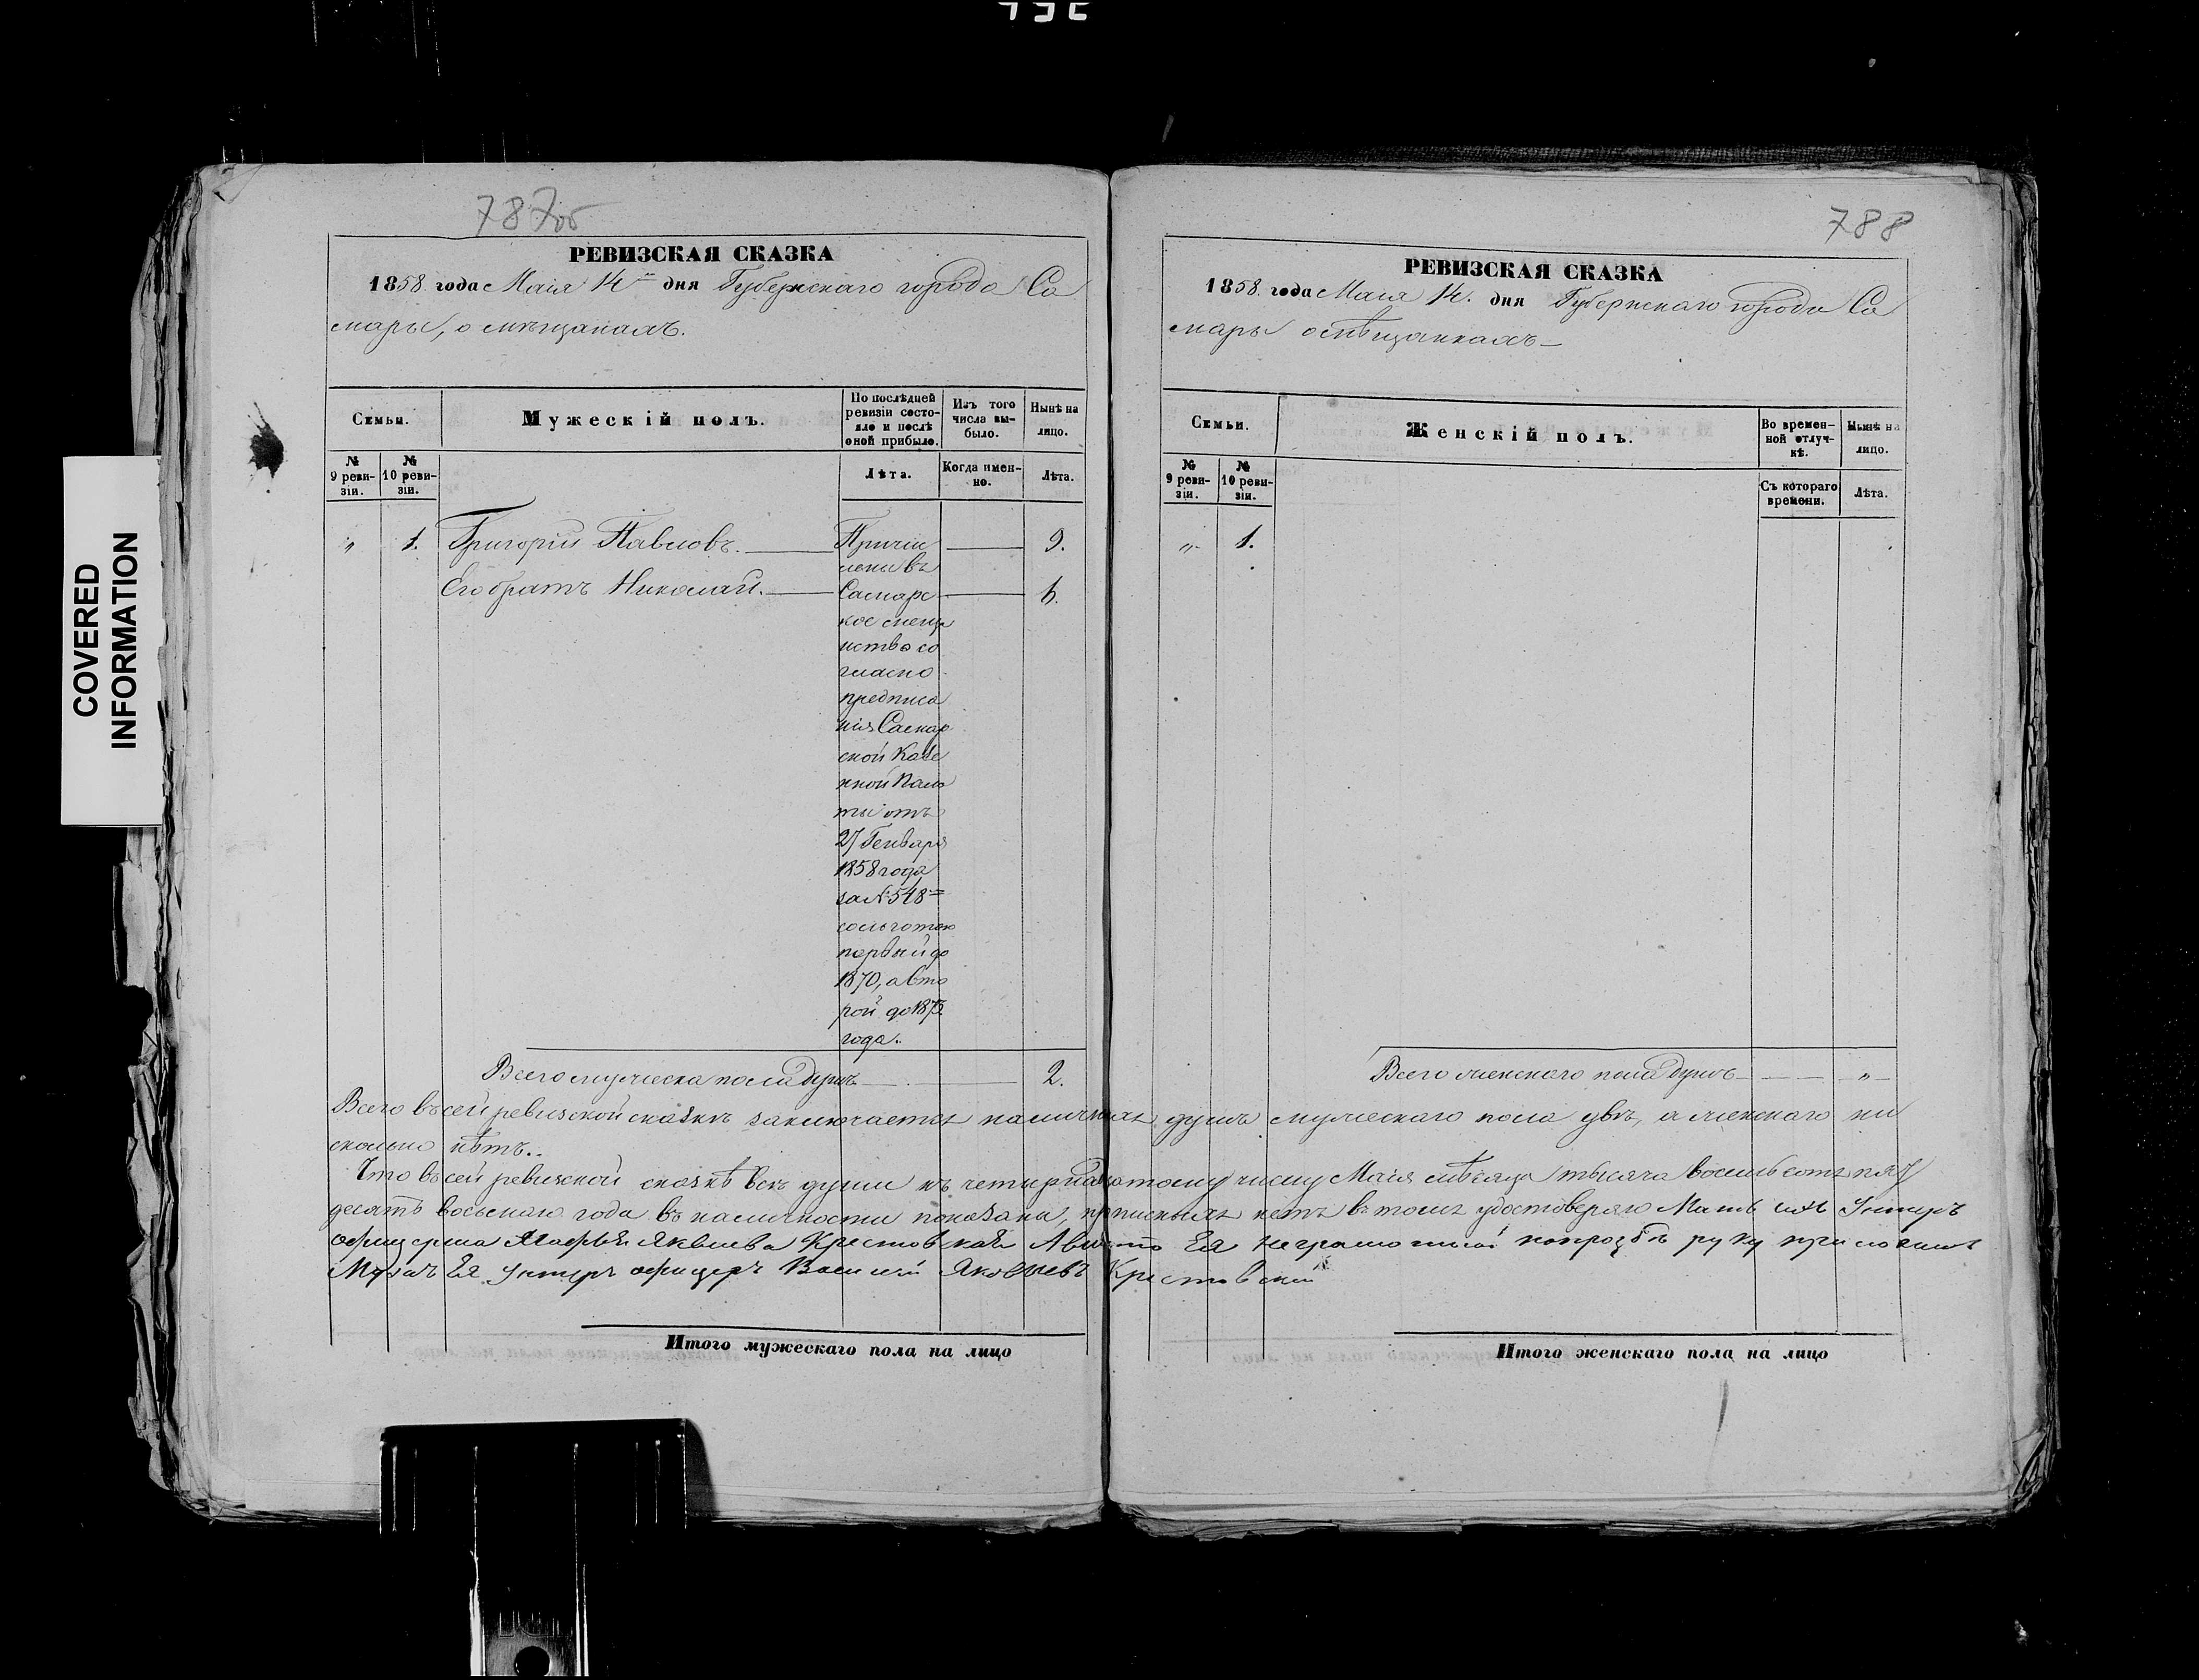 787об
РЕВИЗСКАЯ СКАЗКА
1858 года Маія 14 дня Губернскаго города Са
мары, о мѣщанахъ.
Семьи.
Мужескій полъ.
По послѣдней ревизіи состо-
яло и послѣ оной прибыло.
Изъ того числа вы-
было.
Нынѣ на лицо.
№ 9 реви-
зіи.
№ 10 реви-
зіи.
Лѣта.
Когда имен-
но.
Лѣта.
" 1. Григорій Павловъ. 9.
Его братъ Николай. 6.
Причис
лены въ
Самарс
кое меща
нство со
гласно
предписа
нія Самар
ской Казе
нной Пала
ты отъ
27 Генваря
1858 года
за № 548
со льготою
первый до
1870, а вто
рой до 1873
года.
Всего мужеска пола душъ 2.
788
РЕВИЗСКАЯ СКАЗКА
1858 года Маія 14. дня Губернскаго города Са
мары о мѣщанкахъ
Семьи.
Женскій полъ.
Во времен-
ной отлуч-
кѣ.
Нынѣ на лицо.
№ 9 реви-
зіи.
№ 10 реви-
зіи.
Съ котораго времени.
Лѣта.
" 1.
Всего женскаго пола душъ "
Всего въ сей ревизской сказкѣ заключается наличныхъ душъ мужескаго пола двѣ, а женскаго ни
сколько нѣтъ..
Что въ сей ревизской сказкѣ всѣ души къ четырнадцатому числу Маія мѣсяца тысяча восемьсотъ пять
десятъ восьмаго года въ наличности показаны, прописныхъ нетъ въ томъ удостоверяю Мать ихъ Унтеръ
офицерша Яквлева Крестовская А вместо Ея неграмотной попрозбѣ руку приложилъ
Мужъ Ея Унтеръ офицеръ Василий Яковлевъ Крестовский
Итого мужескаго пола на лицо
Итого женскаго пола на лицо
COVERED
INFORMATION